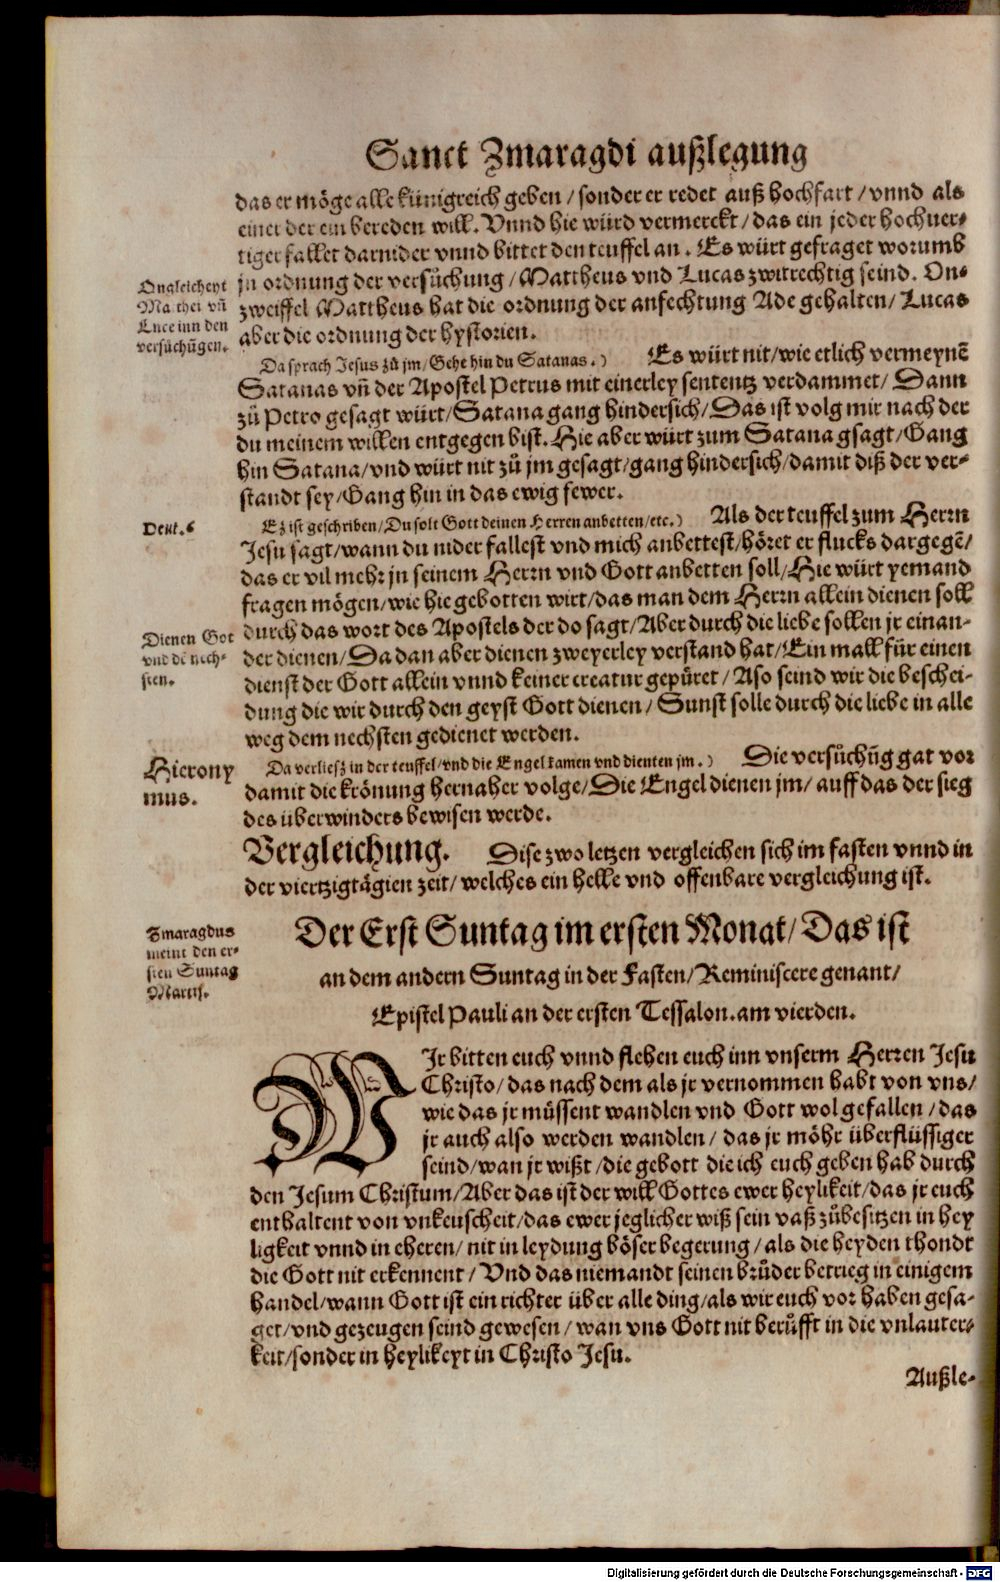 Sanct Zmaragdi außlegung
das er möge alle künigreich geben / sonder er redet auß hochfart / vnnd als
einer der ein bereden will. Vnnd hie würd vermerckt / das ein jeder hochuer-
tiger fallet darnider vnnd bittet den teuffel an. Es würt gefraget worumb
jn ordnung der versůchung / Mattheus vnd Lucas zwitrechtig seind. On-
zweiffel Mattheus hat die ordnung der anfechtung Ade gehalten / Lucas
aber die ordnung der hystorien.
Ongleicheyt
Mathei vñ
Luce inn den
versůchũgen.
Da sprach Jesus zů jm / Gehe hin du Satanas.) Es würt nit / wie etlich vermeynẽ
Satanas vñ der Apostel Petrus mit einerley sententz verdammet / Dann
zů Petro gesagt würt / Satana gang hindersich / Das ist volg mir nach der
du meinem willen entgegen bist. Hie aber würt zum Satana gsagt / Gang
hin Satana / vnd würt nit zů jm gesagt / gang hindersich / damit diß der ver-
standt sey / Gang hin in das ewig fewer.
Deut. 6
Ez ist geschriben / Du solt Gott deinen Herren anbetten / etc.) Als der teuffel zum Herrn
Jesu sagt / wann du nider fallest vnd mich anbettest / höret er flucks dargegẽ /
das er vil mehr jn seinem Herrn vnd Gott anbetten soll / Hie würt yemand
fragen mögen / wie hie gebotten wirt / das man dem Herrn allein dienen soll
durch das wort des Apostels der do sagt / Aber durch die liebe sollen jr einan-
der dienen / Da dan aber dienen zweyerley verstand hat / Ein mall für einen
dienst der Gott allein vnnd keiner creatur gepüret / Aso seind wir die beschei-
dung die wir durch den geyst Gott dienen / Sunst solle durch die liebe in alle
weg dem nechsten gedienet werden.
Dienen Got
vnd dẽ nech-
sten.
Hierony
mus.
Da verliesz in der teuffel / vnd die Engel kamen vnd dienten jm.) Die versůchũg gat vor
damit die krönung hernaher volge / Die Engel dienen jm / auff das der sieg
des überwinders bewisen werde.
Vergleichung. Dise zwo letzen vergleichen sich im fasten vnnd in
der viertzigtägien zeit / welches ein helle vnd offenbare vergleichung ist.
Zmaragdus
meint den er-
sten Suntag
Martij.
Der Erst Suntag im ersten Monat / Das ist
an dem andern Suntag in der Fasten / Reminiscere genant /
Epistel Pauli an der ersten Tessalon. am vierden.
WIr bitten euch vnnd flehen euch inn vnserm Herren Jesu
Christo / das nach dem als jr vernommen habt von vns /
wie das jr müssent wandlen vnd Gott wol gefallen / das
jr auch also werden wandlen / das jr möhr überflüssiger
seind / wan jr wißt / die gebott die ich euch geben hab durch
den Jesum Christum / Aber das ist der will Gottes ewer heylikeit / das jr euch
enthaltent von vnkeuscheit / das ewer jeglicher wiß sein vaß zůbesitzen in hey
ligkeit vnnd in eheren / nit in leydung böser begerung / als die heyden thondt
die Gott nit erkennent / Vnd das niemandt seinen brůder betrieg in einigem
handel / wann Gott ist ein richter über alle ding / als wir euch vor haben gesa-
get / vnd gezeugen seind gewesen / wan vns Gott nit berůfft in die vnlauter-
keit / sonder in heylikeyt in Christo Jesu.
Außle-
Digitalisierung gefördert durch die Deutsche Forschungsgemeinschaft - DFG